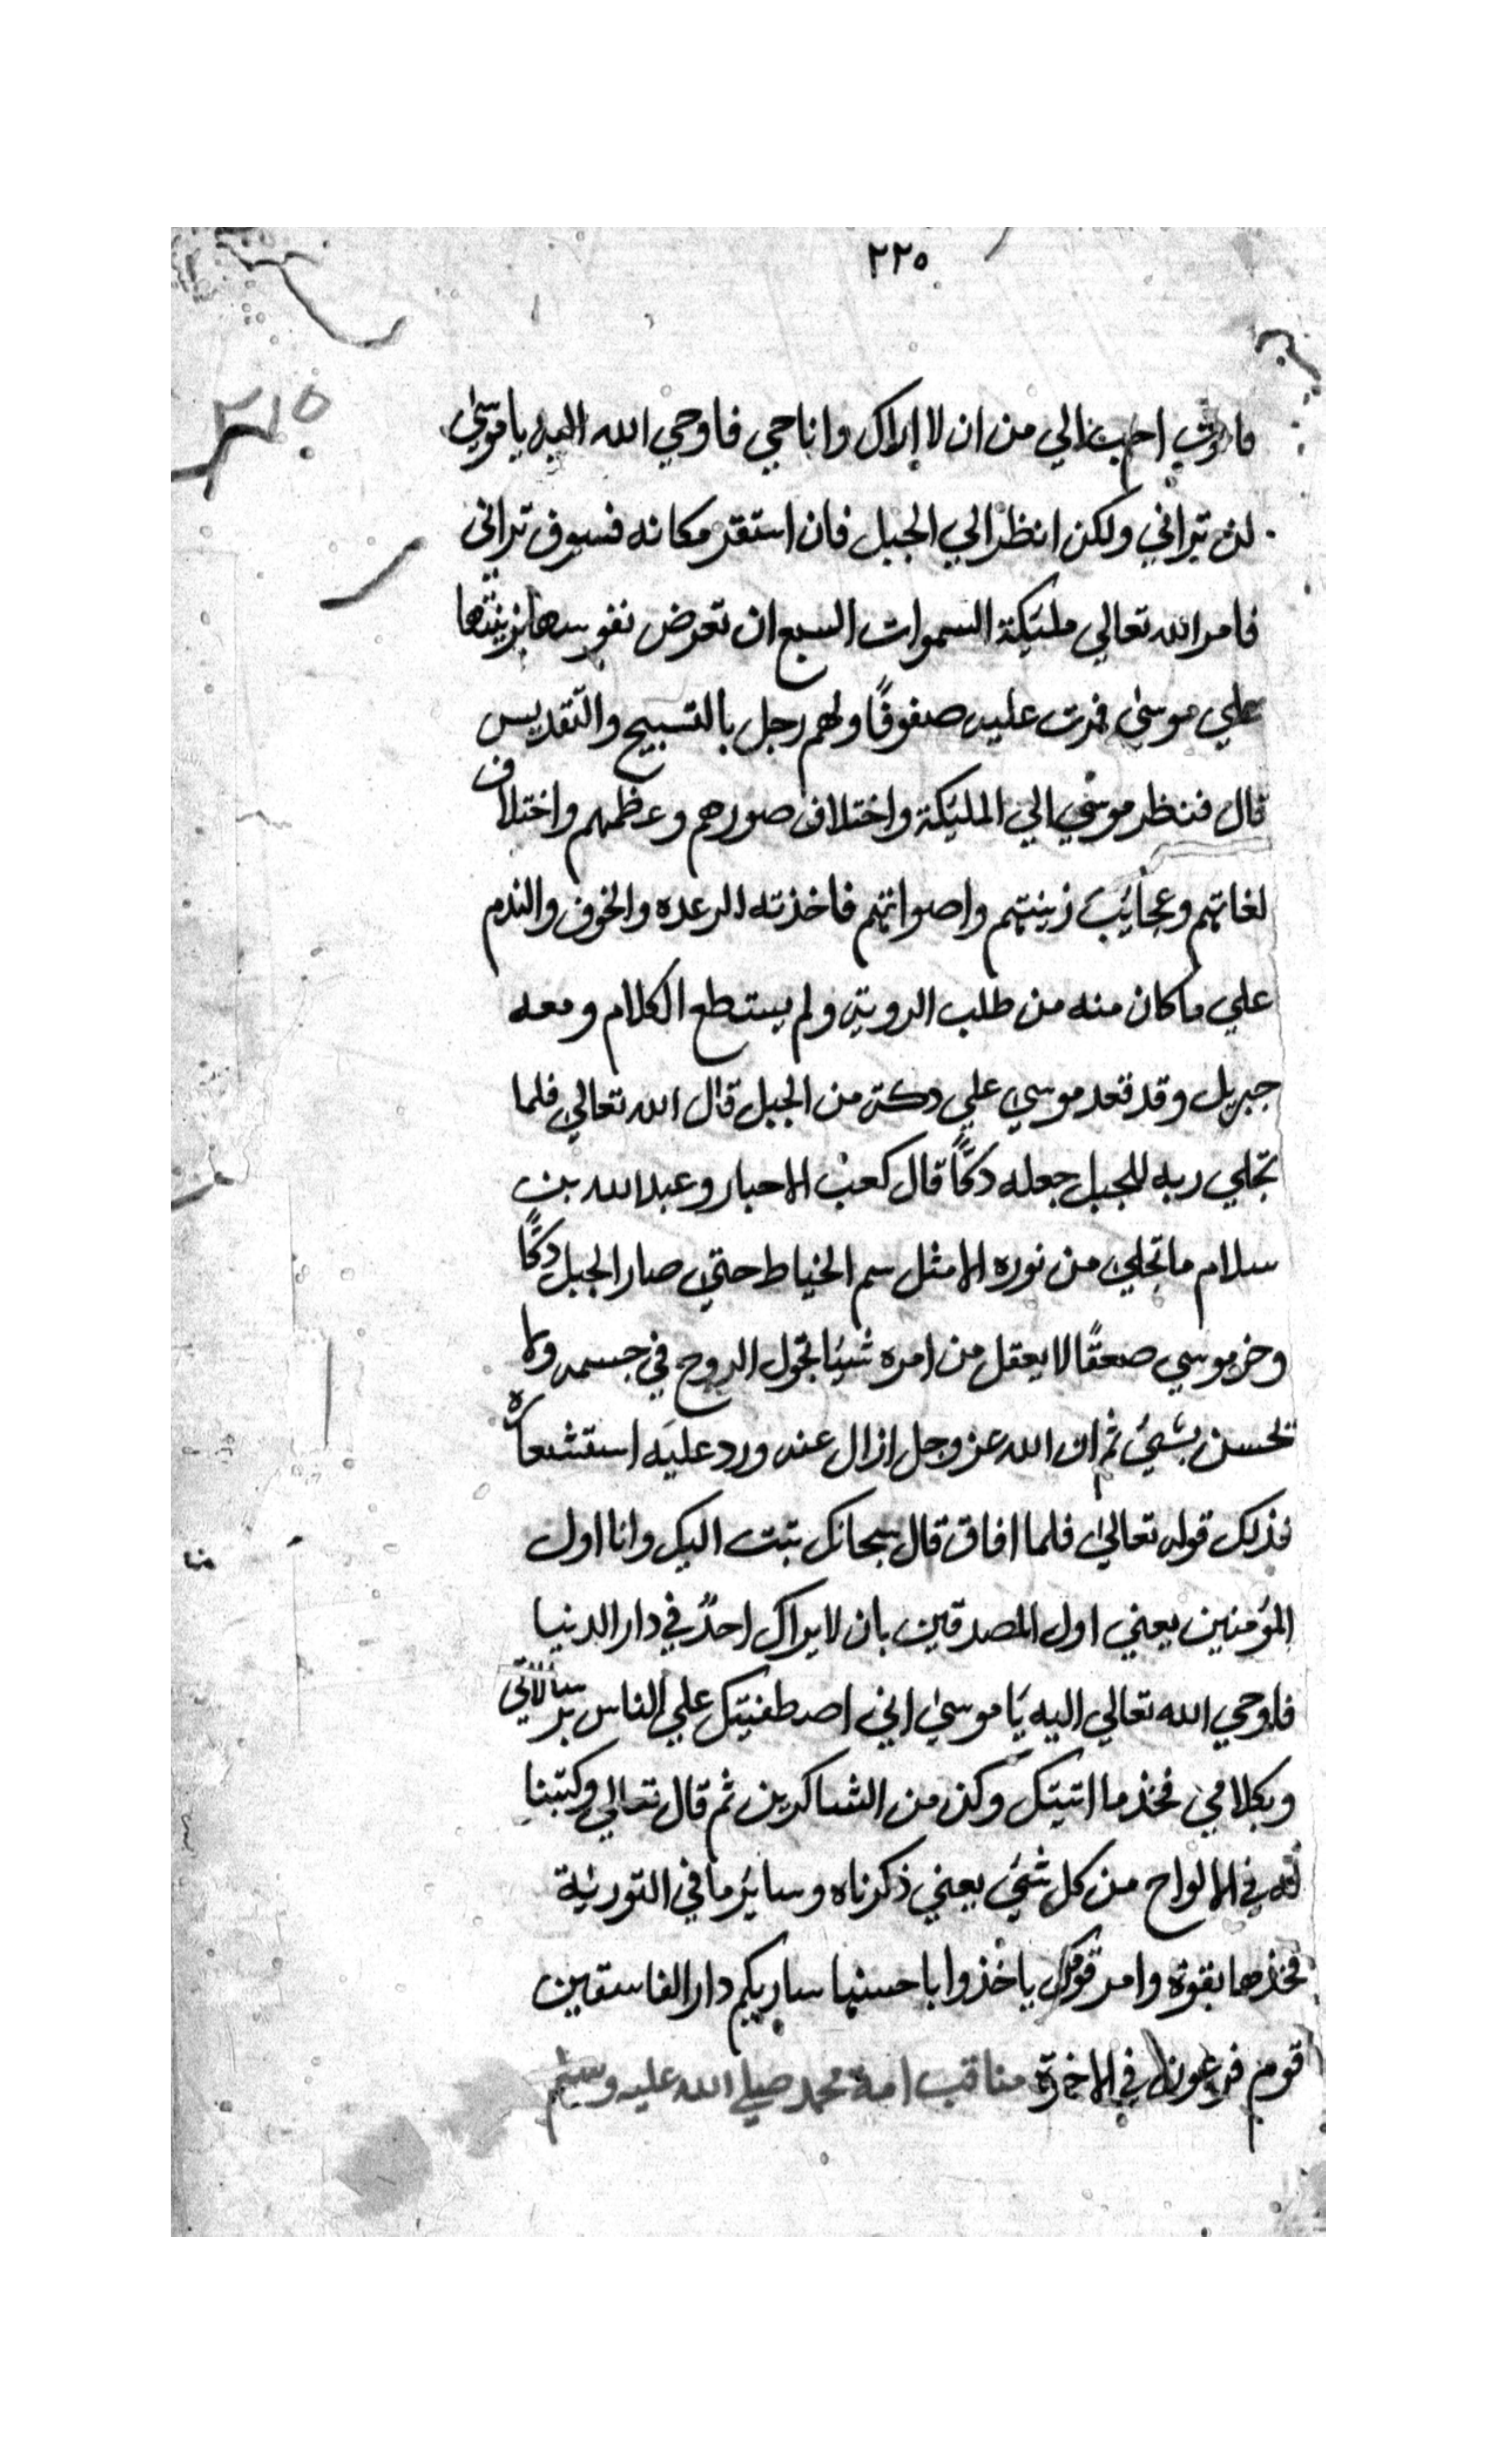 ٢٢٥
٢١٥
فاموت احب الي من ان لا اراك وانا حي فاوحي الله اليه يا موسيٰ
لن تراني ولكن انظر الي الجبل فان استقر مكانه فسوف تراني
فامر الله تعالي مليكة السموات السبع ان تعرض نفوسها بزينتها
علي موسيٰ فمرت عليه صفوفًا ولهم رجل بالتسبيح والتقديس
قال فنظر موسي الي المليكة واختلاف صورهم وعظمهم واختلاف
لغاتهم وعجايب زينتهم واصواتهم فاخذته الرعده والخوف والندم
علي ما كان منه من طلب الروية ولم يستطع الكلام ومعه
جبريل وقد قعد موسي علي دكة من الجبل قال الله تعالي فلما
تجلي ربه للجبل جعله دكًا قال كعب الاحبار وعبد الله بن
سلام ما تجلي من نوره الا مثل سم الخياط حتي صار الجبل دكًا
وخر موسي صعقًا لا يعقل من امره شيئا تجول الروح في جسمه ولا
تحسن بشيء ثم ان الله عز وجل ازال عنه ورد عليه استشعاره
فذلك قوله تعالي فلما افاق قال سبحانك تبت اليك وانا اول
المؤمنين يعني اول المصدقين بان لا يراك احدٌ في دار الدنيا
فاوحي الله تعالي اليه يا موسيٰ اني اصطفيتك علي الناس برسالاتي
وبكلامي فخذ ما اتيتك وكن من الشاكرين ثم قال تعالي وكتبنا
له في الالواح من كل شيء يعني ذكرناه وساير ما في التورية
فخذها بقوة وامر قومك ياخذوا باحسنها ساريكم دار الفاسقين
قوم فرعون في الاخرة مناقب امة محمد صلي الله عليه وسلم